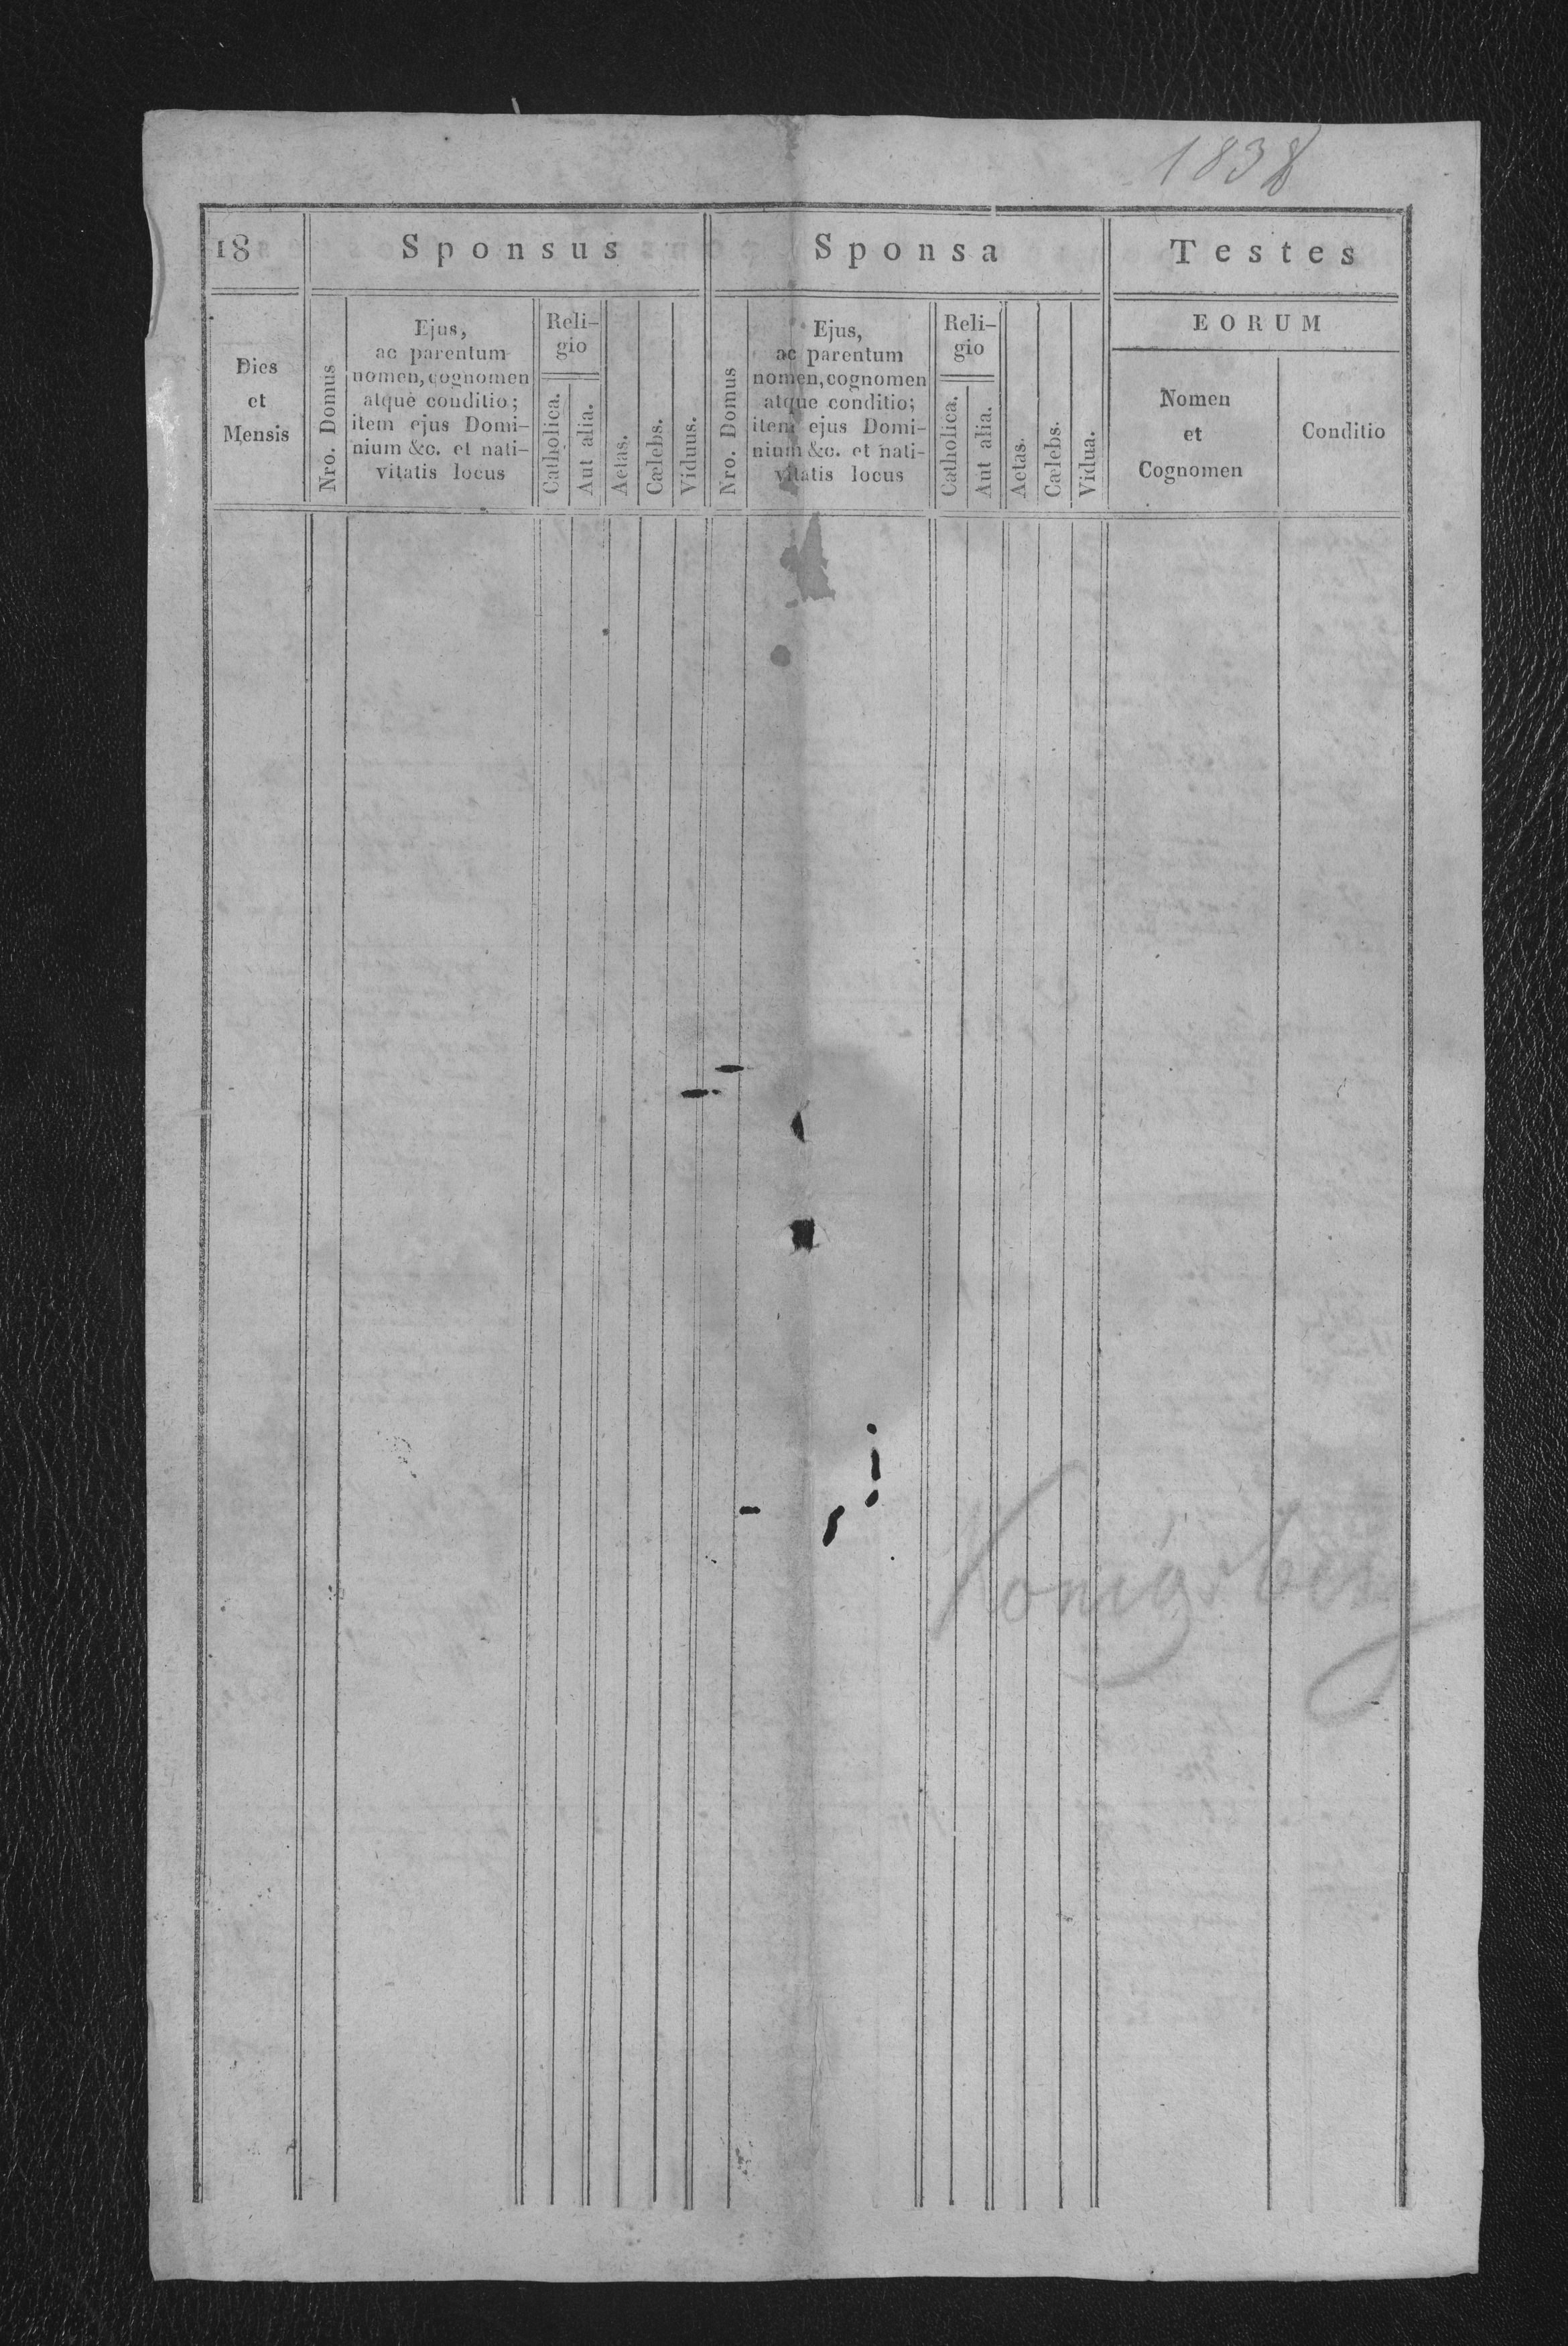 1838
18 Sponsus Sponsa Testes
Dies
et
Mensis
Nro. Domus
Ejus,
ac parentum
nomen, cognomen
atque conditio;
item ejus Domi-
nium &c. et nati-
vitatis locus
Reli-
gio
Catholica.
Aut alia.
Aetas.
Cælebs.
Viduus.
Nro. Domus
Ejus,
ac parentum
nomen, cognomen
atque conditio;
item ejus Domi-
nium &c. et nati-
vitatis locus
Reli-
gio
Catholica.
Aut alia.
Aetas.
Cælebs.
Vidua.
EORUM
Nomen
et
Cognomen
Conditio
Königsberg